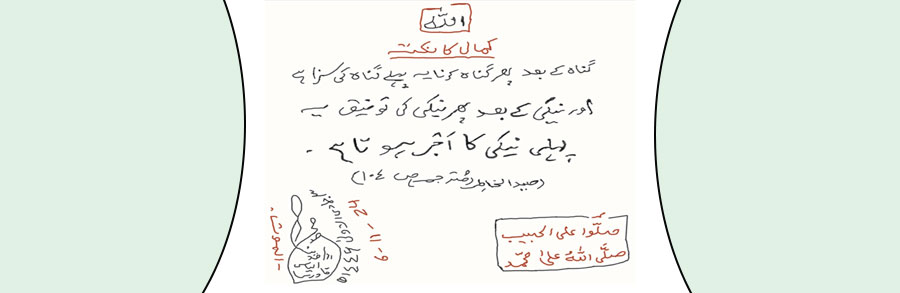 اللہ
کمال کا نکتہ
گناہ کے بعد پھر گناہ کرنا یہ پہلے گناہ کی سزا ہے
اور نیکی کے بعد پھر نیکی کی توفیق یہ
پہلی نیکی کا اَجْر ہوتا ہے۔
(صید الخاطر مترجم ص ۱۰۴)
صَلُّوا علی الحبیب
صلَّی اللہُ علیٰ محمَّد
۹ - ۱۱ - ۲۴
الموت